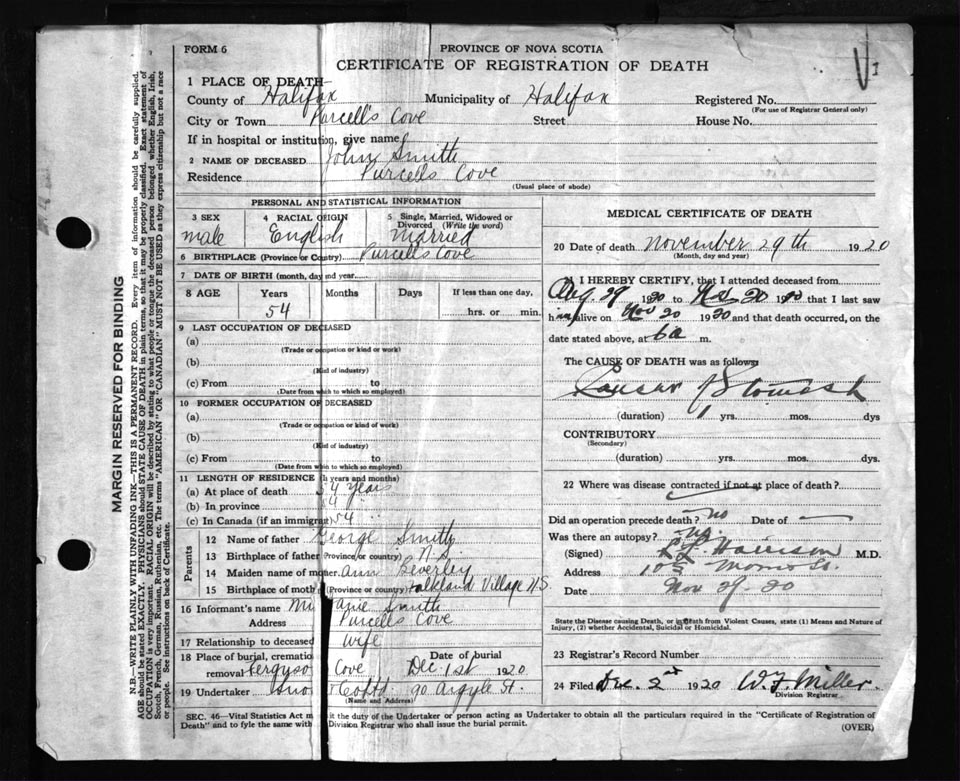 FORM 6
PROVINCE OF NOVA SCOTIA
CERTIFICATE OF REGISTRATION OF DEATH
1 PLACE OF DEATH
County of Halifax Municipality of Halifax Registered No.
(For use of Registrar General only)
City or Town Purcell's Cove Street House No.
If in hospital or institution, give name
2 NAME OF DECEASED John Smith
Residence Purcells Cove
(Usual place of abode)
PERSONAL AND STATISTICAL INFORMATION
3 SEX 4 RACIAL ORIGIN 5 Single, Married, Widowed or Divorced (Write the word)
male English Married
6 BIRTHPLACE (Province or Country) Purcells Cove
7 DATE OF BIRTH (month, day and year)
8 AGE Years Months Days If less than one day,
54 hrs. or min.
9 LAST OCCUPATION OF DECEASED
(a)
(Trade or occupation or kind of work)
(b)
(Kind of industry)
(c) From to
(Date from which to which so employed)
10 FORMER OCCUPATION OF DECEASED
(a)
(Trade or occupation or kind of work)
(b)
(Kind of industry)
(c) From to
(Date from which to which so employed)
11 LENGTH OF RESIDENCE (In years and months)
(a) At place of death 54 years
(b) In province 54 " "
(c) In Canada (if an immigrant) 54 " "
Parents
12 Name of father George Smith
13 Birthplace of father (Province or country) N.S.
14 Maiden name of mother Ann Beverley
15 Birthplace of moth (Province or country) Falkland Village N.S.
16 Informant's name Smith
Address Purcells Cove
17 Relationship to deceased Wife
18 Place of burial, crematio removal Ferguso Cove Date of burial Dec. 1st 1920
19 Undertaker Sno Co Ltd. 90 Argyle St.
(Name and Address)
MEDICAL CERTIFICATE OF DEATH
20 Date of death November 29th 1920
(Month, day and year)
21 I HEREBY CERTIFY, that I attended deceased from
Aug. 29 1920 to Nov 20 1920 that I last saw
him alive on Nov 20 1920 and that death occurred, on the
date stated above, at 6a m.
The CAUSE OF DEATH was as follows:
Cancer of Stomach
(duration) 1 yrs. mos. dys
CONTRIBUTORY
(Secondary)
(duration) yrs. mos. dys.
22 Where was disease contracted if not at place of death?
Did an operation precede death? no Date of
Was there an autopsy? no.
(Signed) M.D.
Address
Date Nov 29. 20
State the Disease causing Death, or in Death from Violent Causes, state (1) Means and Nature of
Injury, (2) whether Accidental, Suicidal or Homicidal.
23 Registrar's Record Number
24 Filed Dec. 2nd 1920 W.F. Miller.
Division Registrar
SEC. 46—Vital Statistics Act m it the duty of the Undertaker or person acting as Undertaker to obtain all the particulars required in the "Certificate of Registration of
Death" and to fyle the same wit Division Registrar who shall issue the burial permit.
(OVER)
MARGIN RESERVED FOR BINDING
N.B.—WRITE PLAINLY WITH UNFADING INK—THIS IS A PERMANENT RECORD. Every item of information should be carefully supplied.
AGE should be stated EXACTLY. PHYSICIANS should STATE CAUSE OF DEATH in plain terms, so that it may be properly classified. Exact statement of
OCCUPATION is very important. RACIAL ORIGIN will be described by stating to what people or tongue the deceased person belonged whether English, Irish,
Scotch, French, German, Russian, Ruthenian, etc. The terms "AMERICAN" OR "CANADIAN" MUST NOT BE USED as they express citizenship but not a race
or people. See instructions on back of Certificate.